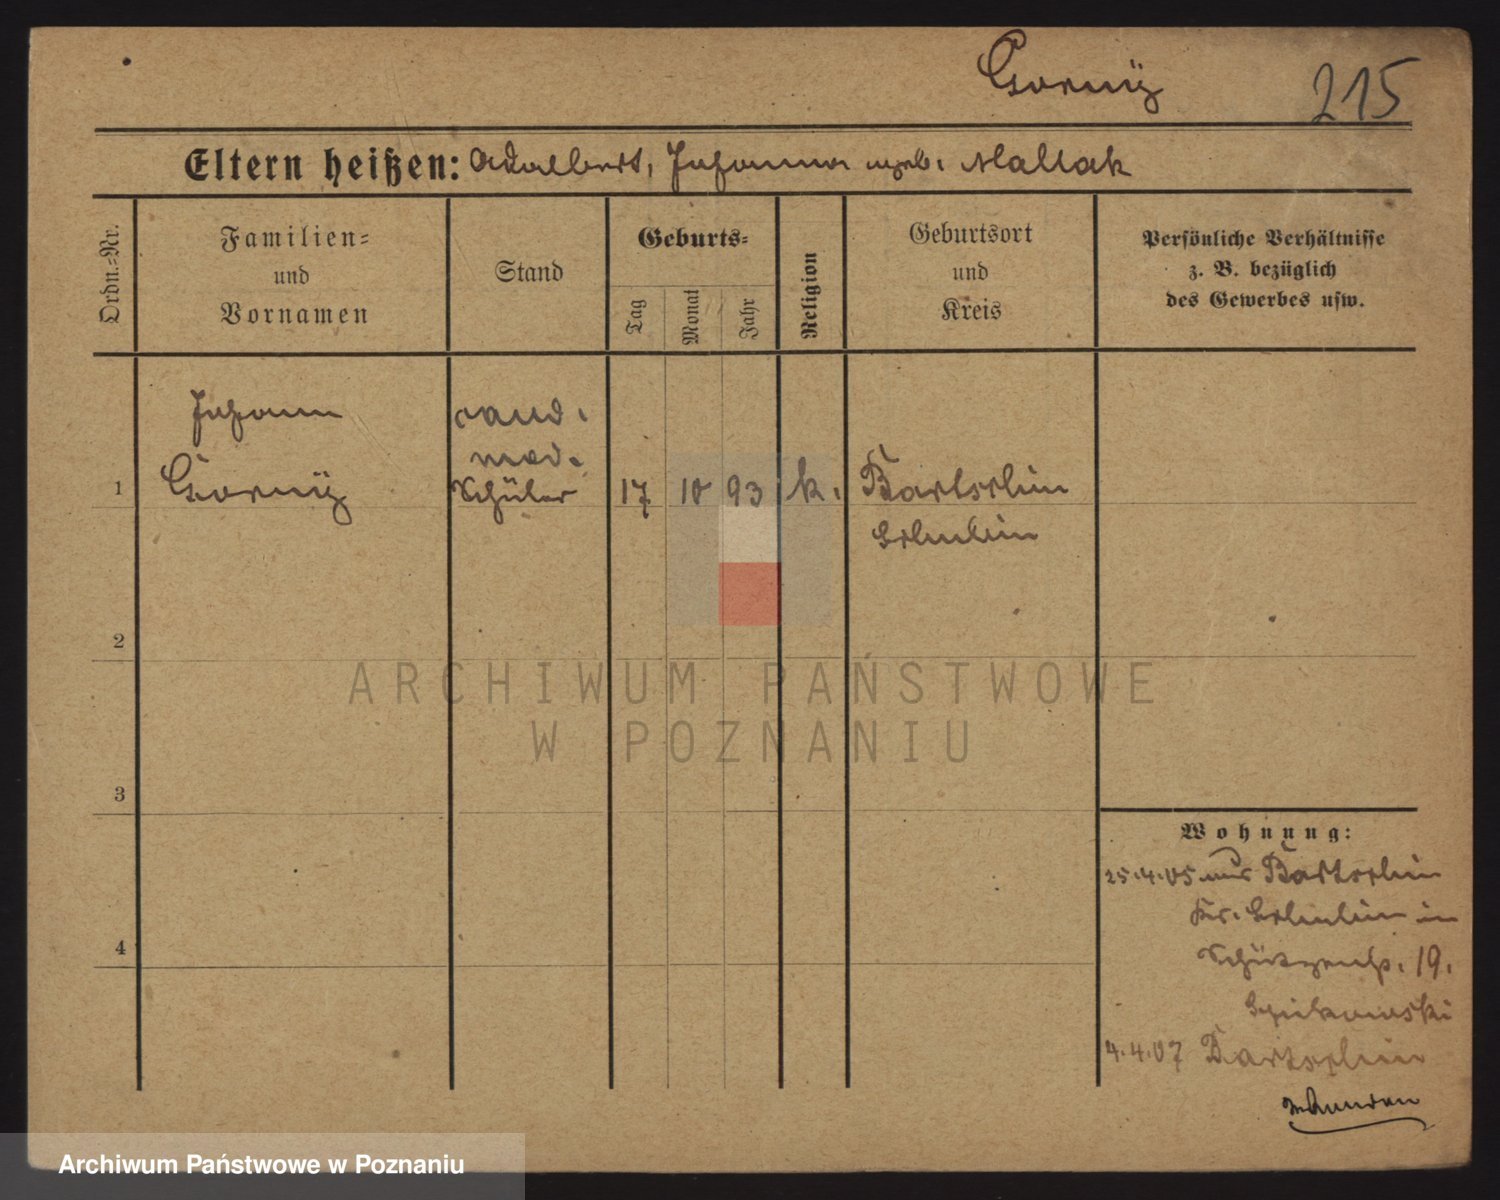 Gorny 215
Eltern heißen: Adalbert, Johanna geb. Mallak
Ordn.-Nr.
Familien-
und
Vornamen
Stand
Geburts-
Tag
Monat
Jahr
Religion
Geburtsort
und
Kreis
Persönliche Verhältnisse
z. B. bezüglich
des Gewerbes usw.
Johann cand.
med.
1 Gorny Schüler 17 10 93 k.
2
ARCHIWUM PAŃSTWOWE
W POZNANIU
3
Wohnung:
25.4.05 aus
Kr. in
4
Schützenstr. 19.
4.4.07
Archiwum Państwowe w Poznaniu